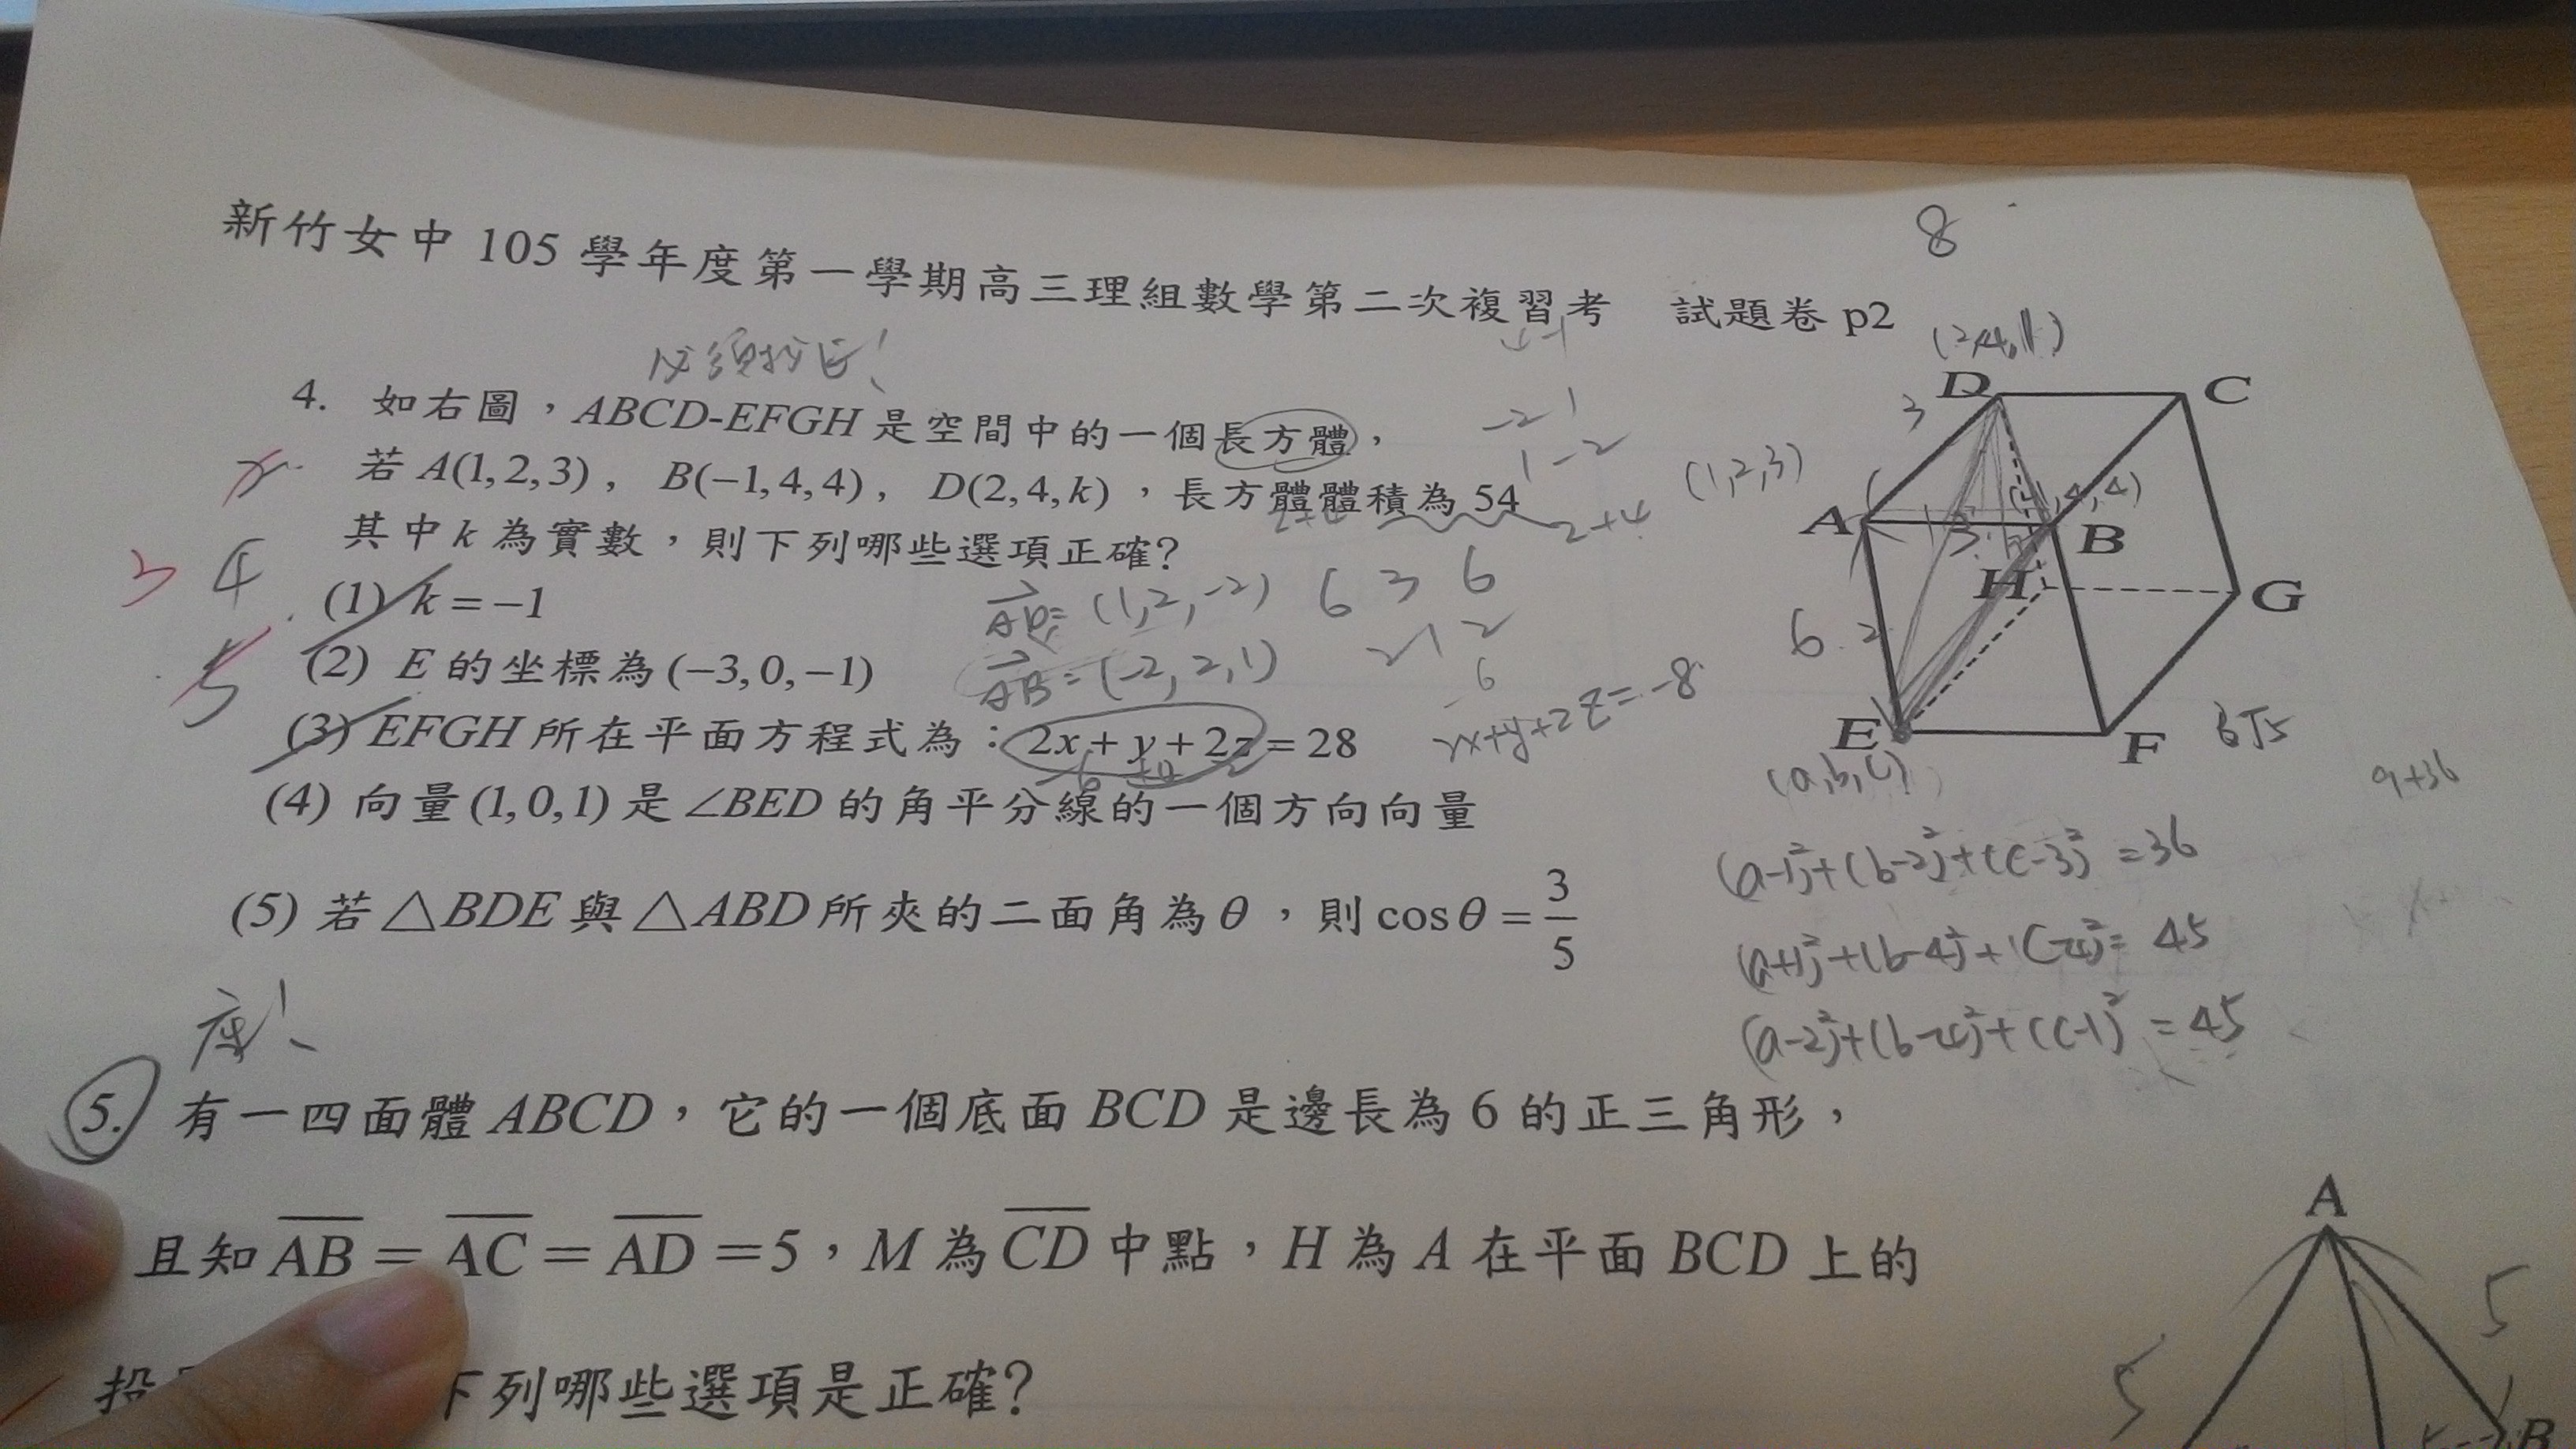 8
新竹女中 105 學年度第一學期高三理組數學第二次複習考 試題卷 p2
必須找E!
4. 如右圖，ABCD-EFGH 是空間中的一個長方體，
若 A(1,2,3)， B(-1,4,4)， D(2,4,k)，長方體體積為 54
其中 k 為實數，則下列哪些選項正確?
(1) k = -1
(2) E 的坐標為 (-3,0,-1)
(3) EFGH 所在平面方程式為：2x + y + 2z = 28
(4) 向量 (1,0,1) 是 ∠BED 的角平分線的一個方向向量
(5) 若 △BDE 與 △ABD 所夾的二面角為 θ ，則 cos θ = 3/5
3 4
5
-2 1
1 -2
2+4
AD = (1,2,-2) 6 3 6
AB = (-2,2,1) 2 1 2
2x+y+2z=-8
D C
3
(1,2,3)
A B
H G
6
E F 6√5
(a,b,c)
9+36
(a-1)²+(b-2)²+(c-3)² = 36
(a+1)²+(b-4)²+(c-4)² = 45
(a-2)²+(b-4)²+(c-1)² = 45
5. 有一四面體 ABCD，它的一個底面 BCD 是邊長為 6 的正三角形，
且知 AB = AC = AD = 5，M 為 CD 中點，H 為 A 在平面 BCD 上的
投 下列哪些選項是正確?
A
5 5
B